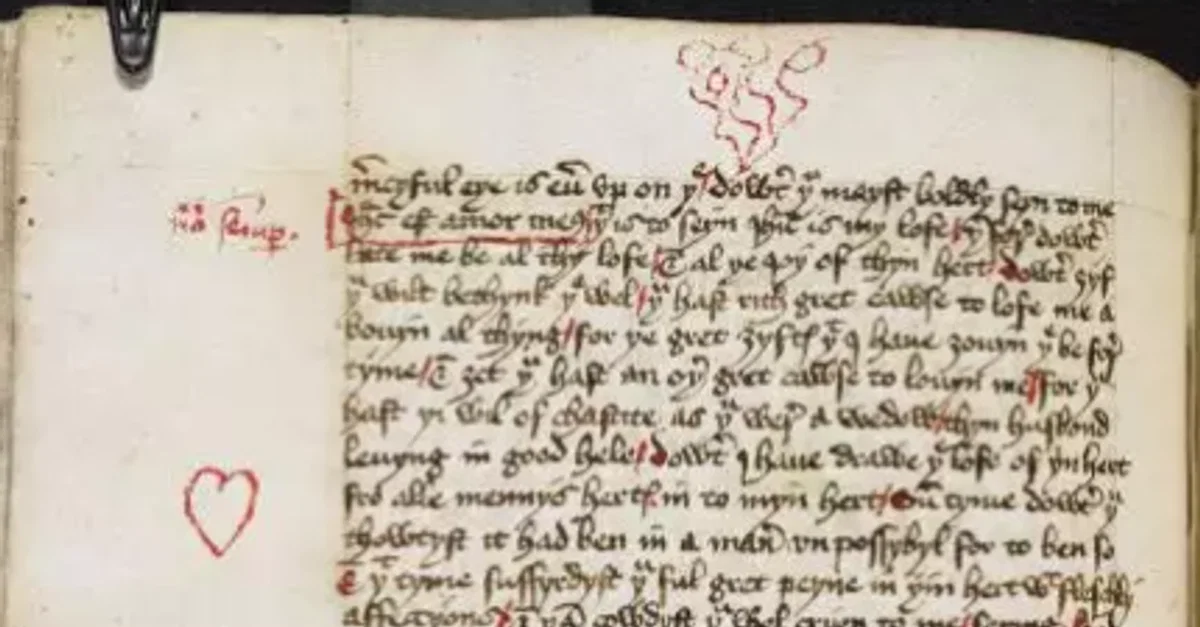 m̄cyful eye is eu̅ vp on yͤ / dowtͬ yᵘ mayst boldly seyn to me
nͣ semp.
Ihc est amor meꝰ yͭ is to seyn Ihc is my lofe / yʳfoʳ dowtͬ
late me be al thy lofe / & al þe joy of thyn hert / dowtͬ ȝyf
yᵘ wilt bethynk yͤ wel / yᵘ hast rith gret cawse to lofe me a
bouyn al thyng / for þe gret ȝyftꝭ yͭ I haue ȝouyn yͤ be foʳ
tyme / & ȝet yᵘ hast an oyʳ gret cawse to louyn me / for yᵘ
hast yi wil of chastite as yᵘ weʳ a wedow / thyn husbond
leuyng in good hele / dowtͬ I haue drawe yͤ lofe of yn hert
fro alle mennys hertꝭ in to myn hert / Su̅ tyme dowtͬ yᵘ
thowtyst it had ben in a man̄ vnpossybyl for to ben so
& yͭ tyme suffyrdyst yᵘ ful gret peyne in yin hert wͭ fleschly